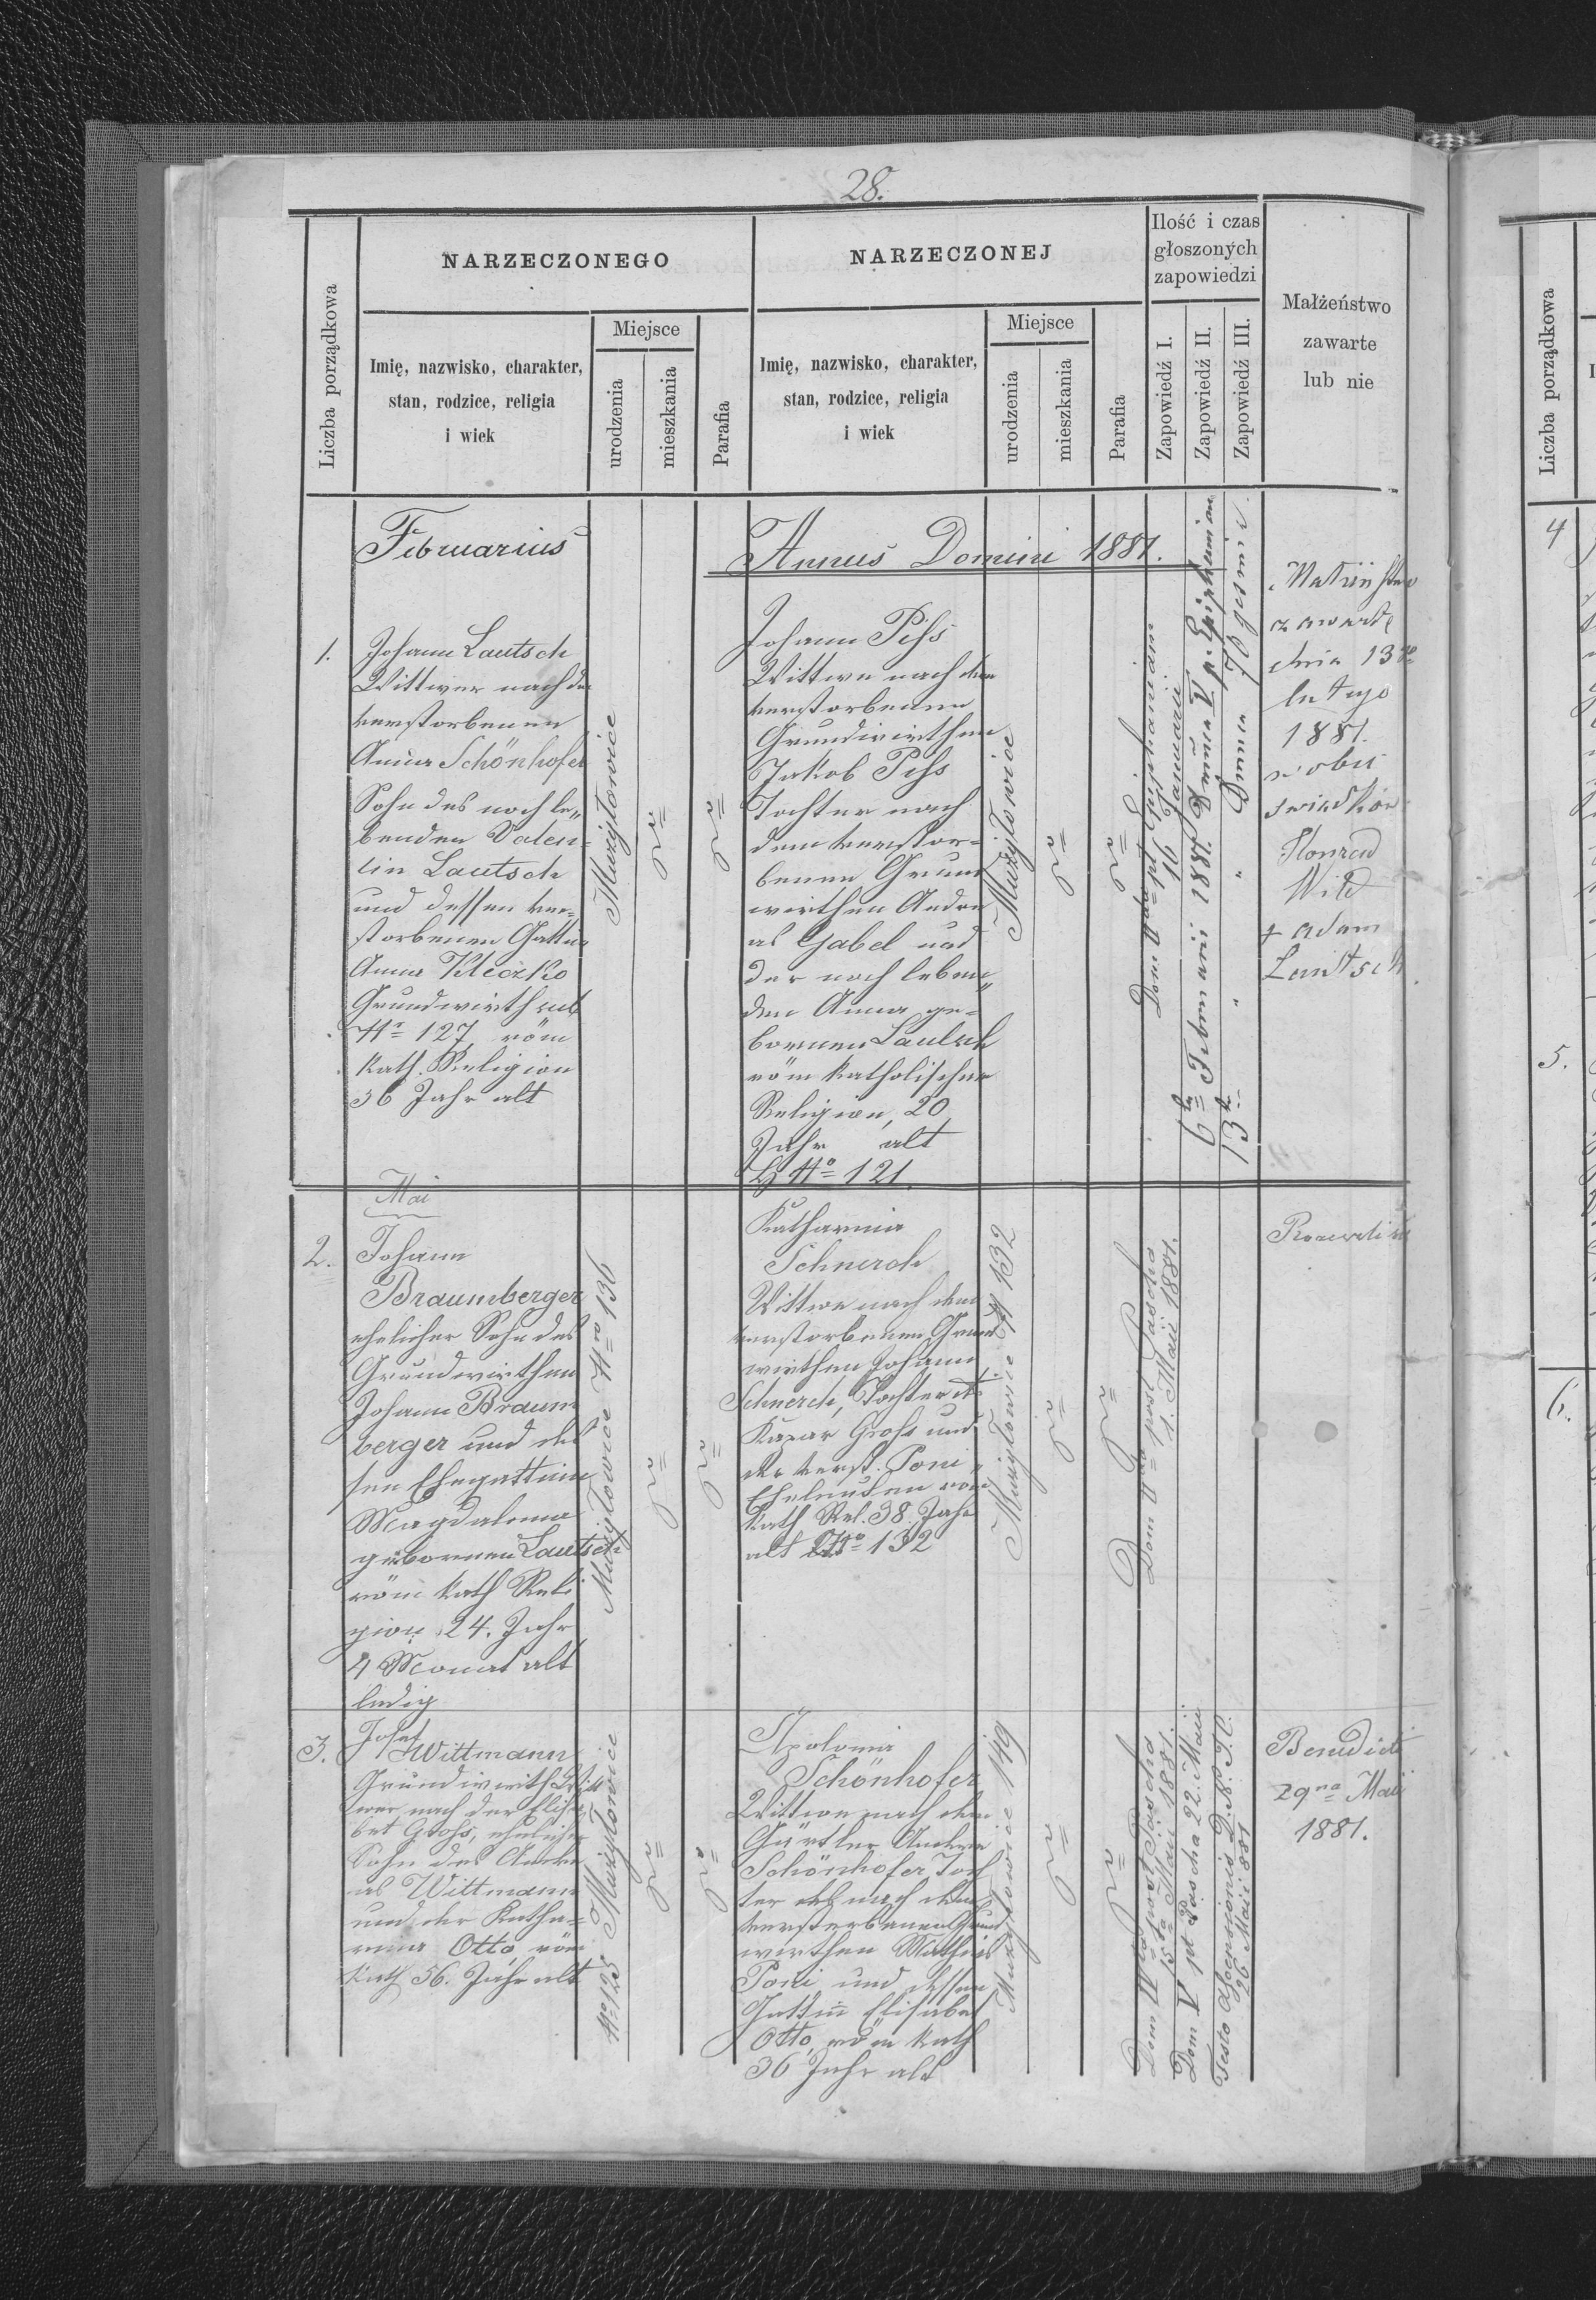 28.
Liczba porządkowa
NARZECZONEGO
Imię, nazwisko, charakter,
stan, rodzice, religia
i wiek
Miejsce
urodzenia
mieszkania
Parafia
NARZECZONEJ
Imię, nazwisko, charakter,
stan, rodzice, religia
i wiek
Miejsce
urodzenia
mieszkania
Parafia
Ilość i czas
głoszonych
zapowiedzi
Zapowiedź I.
Zapowiedź II.
Zapowiedź III.
Małżeństwo
zawarte
lub nie
Februarius
Annus Domini 1881.
1.
Johann Lautsch
Wittwer nach der
verstorbenen
Anna Schönhofer
Sohn des noch le„
benden Valen=
tin Lautsch
und dessen ver=
storbenen Gattin
Anna Kleczko
Grundwirth sub
Nr= 127, röm
kath. Religion
36 Jahr alt
Mużyłowice
Johann Piss
Wittwe nach dem
verstorbenen
Grundwirthen
Jakob Piss
Tochter nach
dem verstor=
benen Grund
wirthen Andre
as Gabel und
der noch leben„
den Anna ge=
bornen Lautsch
röm katholischer
Religion, 20
Jahr alt
No= 121.
Mużyłowice
Dom IIda pt Epiphaniam
16 Januarii
6ta Februarii 1881. Domca V p. Epiphaniam
13ta " " Domca 70gesimae
zawarte
dnia 13go
lutego
1881.
wobec
świadków
Konrad
Wild
+ Adam
Lautsch
Mai
2.
Johann
Braumberger
ehelicher Sohn des
Grundwirthen
Johann Braum
berger und des
sen Ehegattin
Magdalena
gebornen Lautsch
röm kath Reli
gion 24. Jahr
4 Monat alt
ledig
Mużyłowice Nro= 136
Katharina
Schnerch
Wittwe nach dem
verstorbenen Grund
wirthen Johann
Schnerch, Tochter d.
Kaspar Gross und
der verst. Poni
Eheleuten röm
kath Rel. 38. Jahr
alt No= 132
Mużyłowice N 132
Dom IIda post Pascha
1. Maii 1881.
3.
Josef
Wittmann
Grundwirth Witt
wer nach der Elisa
bet Gross, ehelicher
Sohn des Andre
as Wittmann
und der Katha=
rina Otto, röm
kath 56. Jahr alt
No 125 Mużyłowice
Apolonia
Schönhofer
Wittwe nach dem
Gärtler Andrea
Schönhofer Toch
ter des nach dem
verstorbenen Grund
wirthen Mathias
Poni und dessen
Gattin Elisabet
Otto, röm kath
36 Jahr alt
Mużyłowice 149
Dom IVta post Pascha
15ta Maii 1881.
Dom V pt Pascha 22. Maii
Festo Ascensionis D.N.J.C.
26 Maii 881
Benedicti
29na Maii
1881.
Liczba porządkowa
4
5.
6.